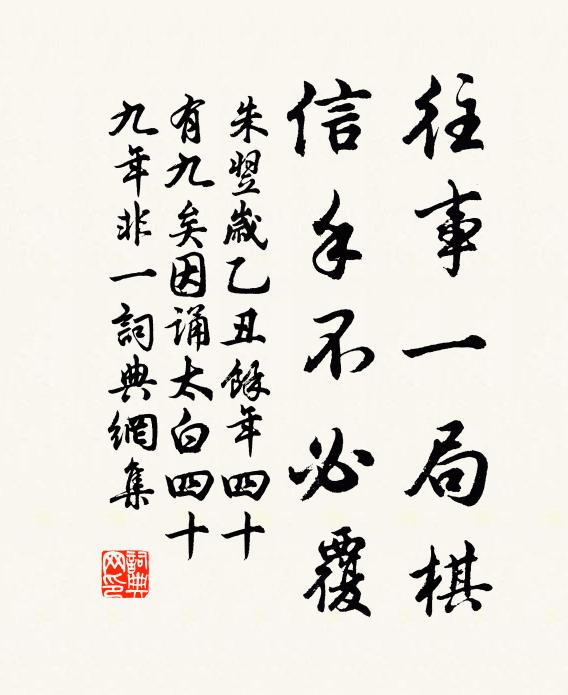 往事一局棋
信手不必覆
朱翌歲乙丑餘年四十
有九矣因誦太白四十
九年非一詞典網集
詞典網印